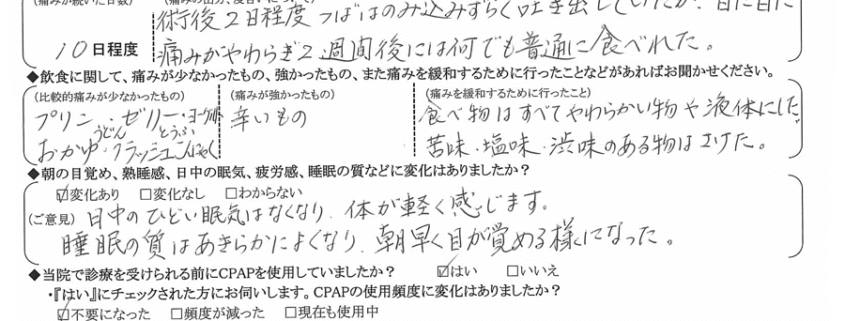 (痛みが続いた日数)
術後2日程度つばはのみ込みずらく吐き出していたが、日に日に
10日程度 痛みがやわらぎ2週間後には何でも普通に食べれた。
◆飲食に関して、痛みが少なかったもの、強かったもの、また痛みを緩和するために行ったことなどがあればお聞かせください。
(比較的痛みが少なかったもの) (痛みが強かったもの) (痛みを緩和するために行ったこと)
プリン・ゼリー・ヨーグルト 辛いもの 食べ物はすべてやわらかい物や液体にした
うどん とうふ
おかゆ・クラッシュこんにゃく 苦味・塩味・渋味のある物はさけた。
◆朝の目覚め、熟睡感、日中の眠気、疲労感、睡眠の質などに変化はありましたか?
☑変化あり □変化なし □わからない
(ご意見) 日中のひどい眠気はなくなり、体が軽く感じます。
睡眠の質はあきらかによくなり、朝早く目が覚める様になった。
◆当院で診療を受けられる前にCPAPを使用していましたか? ☑はい □いいえ
・『はい』にチェックされた方にお伺いします。CPAPの使用頻度に変化はありましたか?
☑不要になった □頻度が減った □現在も使用中